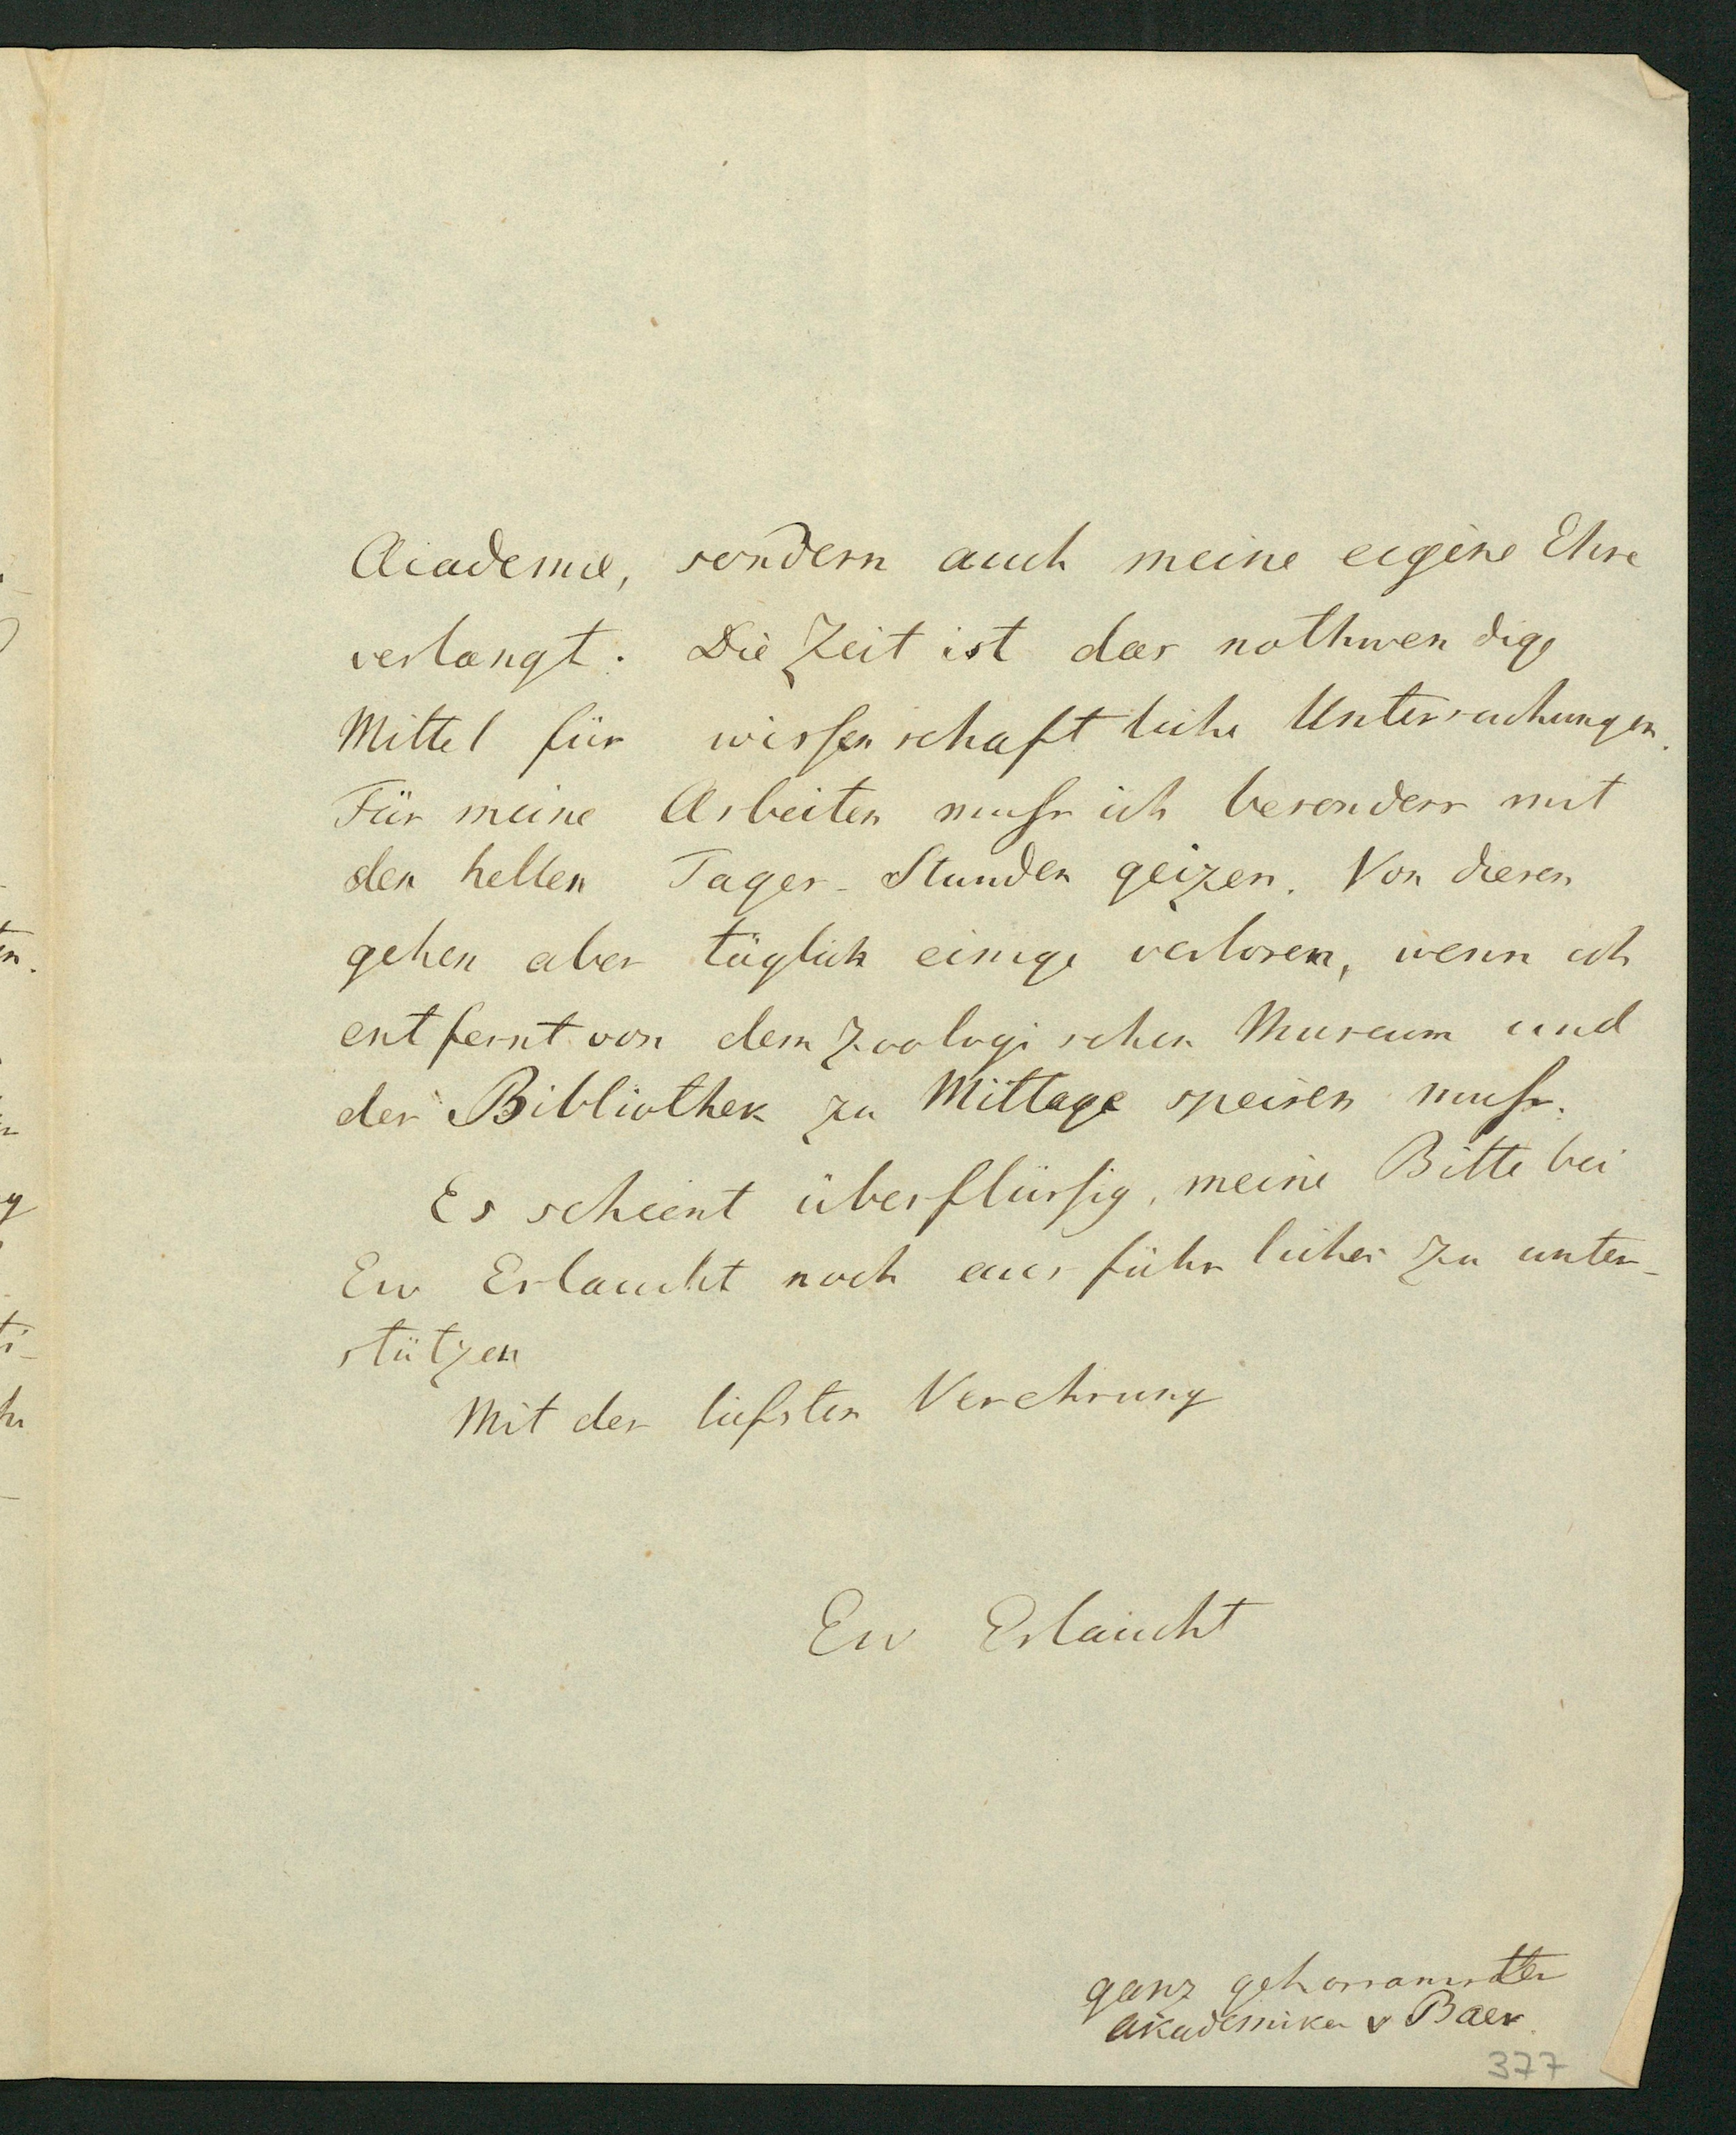 Academie, sondern auch meine eigene Ehre
verlangt. Die Zeit ist das nothwendige
Mittel für wissenschaftliche Untersuchungen.
Für meine Arbeiten muss ich besonders mit
den hellen Tages-Stunden geizen. Von diesen
gehen aber täglich einige verloren, wenn ich
entfernt von dem zoologischen Museum und
der Bibliothek zu Mittage speisen muss.
Es scheint überflüssig, meine Bitte bei
Ew Erlaucht noch ausführlicher zu unter-
stützen
Mit der tiefsten Verehrung
Ew Erlaucht
ganz gehorsamster
Akademiker v Baer.
377